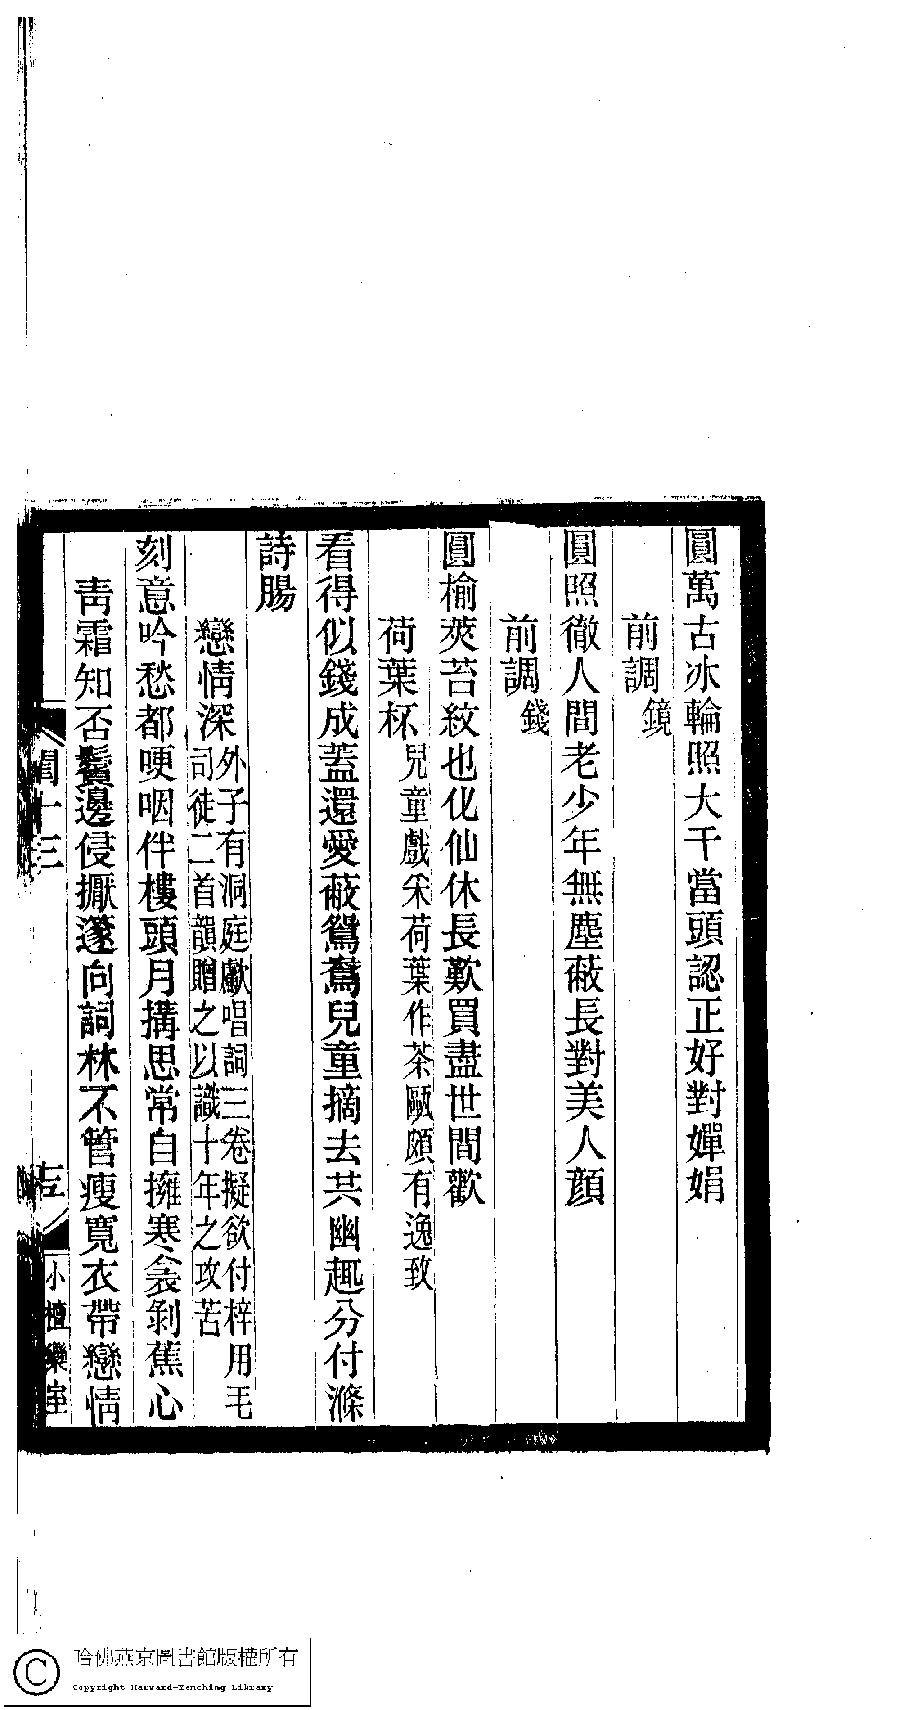 圓萬古冰輪照大千當頭認正好對嬋娟
前調鏡
圓照徹人間老少年無塵蔽長對美人顔
前調錢
圓榆莢苔紋也化仙休長歎買盡世間歡
荷葉杯兒童戲釆荷葉作茶甌頗有逸致
看得似錢成蓋還愛蔽鴛鴦兒童摘去共幽趣分付滌
詩腸
戀情深外子有洞庭獻唱詞三卷擬欲付梓用毛
司徒二首韻贈之以識十年之攻苦
刻意吟愁都哽咽伴樓頭月搆思常自擁寒衾剝蕉心
靑霜知否鬢邊侵擫邃向詞林不管瘦寬衣帶戀情
閨十三
小檀欒室
哈佛燕京圖書館版權所有
Copyright Harvard-Yenching Library